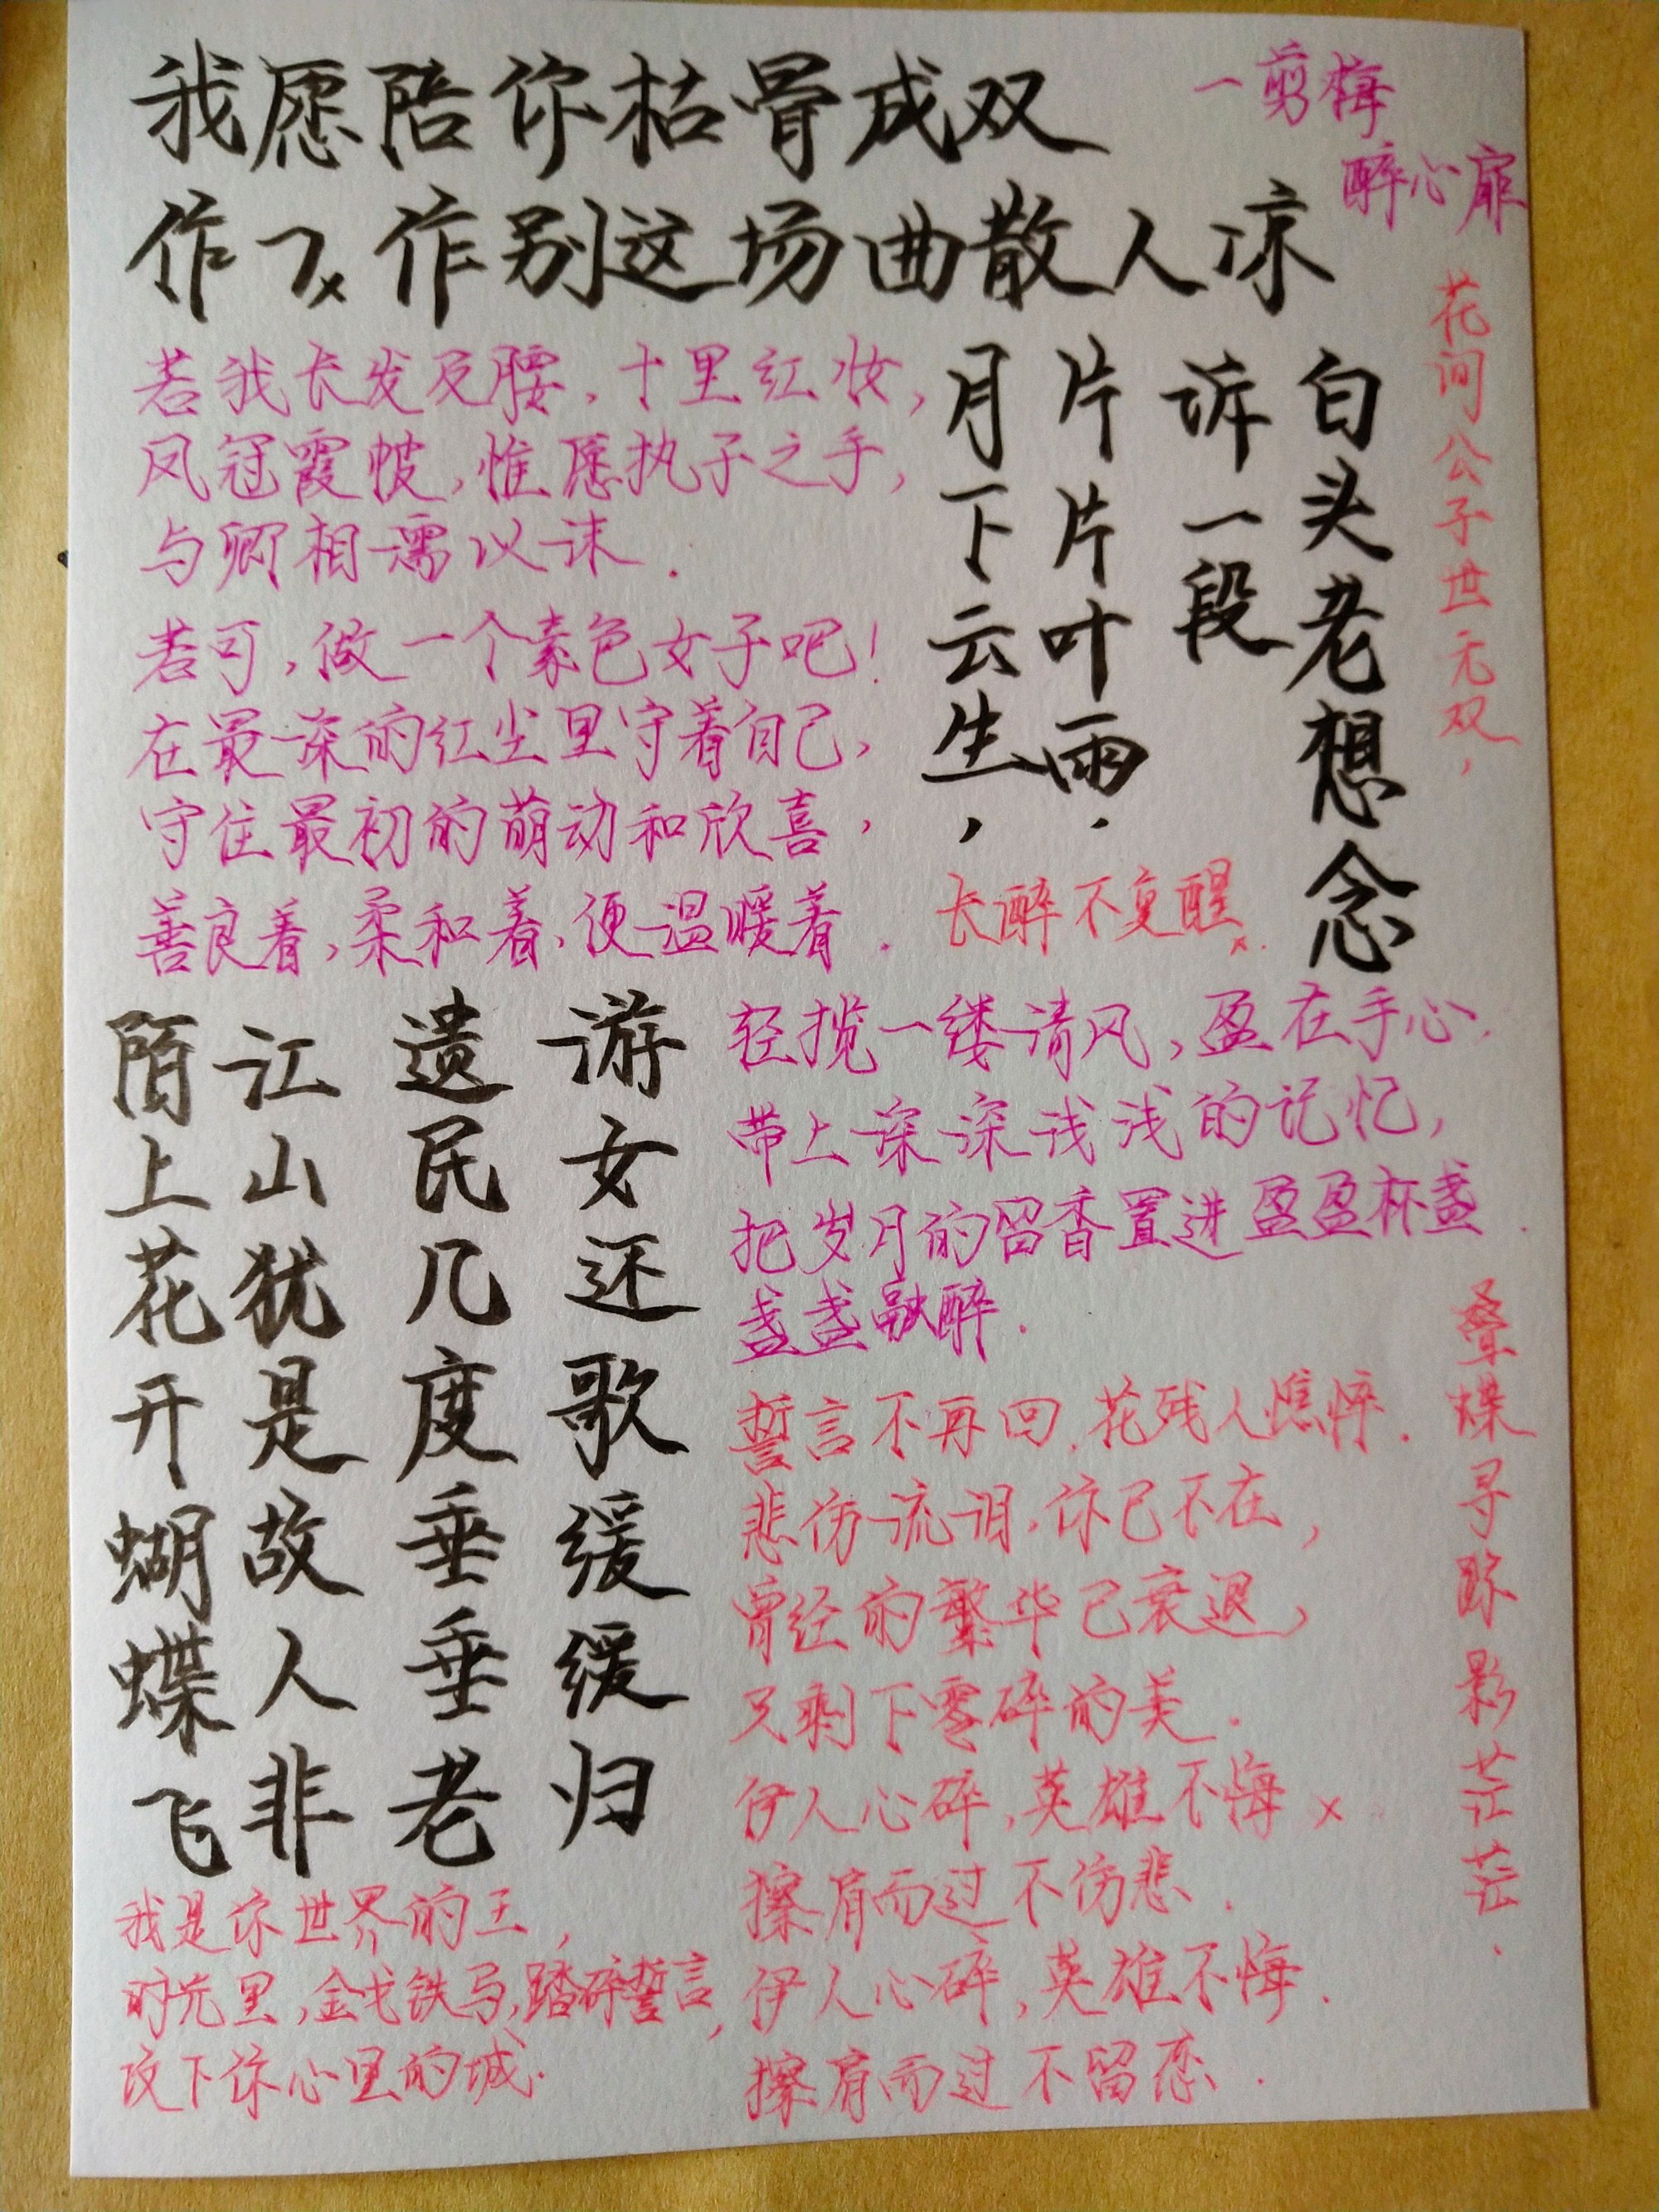 我愿陪你枯骨成双
作作别这场曲散人凉
一剪梅
醉心扉
若我长发及腰，十里红妆，
凤冠霞帔，惟愿执子之手，
与卿相濡以沫．
若可，做一个素色女子吧！
在最深的红尘里守着自己，
守住最初的萌动和欣喜，
善良着，柔和着，便温暖着．
月下云生，
片片叶雨．
诉一段
白头老想念
花间公子世无双，
长醉不复醒．
陌上花开蝴蝶飞
江山犹是故人非
遗民几度垂垂老
游女还歌缓缓归
轻揽一缕清风，盈在手心．
带上深深浅浅的记忆，
把岁月的留香置进盈盈杯盏．
盏盏融醉．
誓言不再回，花残人憔悴．
悲伤流泪．你已不在，
曾经的繁华已衰退，
只剩下零碎的美．
伊人心碎，英雄不悔
擦肩而过不伤悲．
伊人心碎，英雄不悔．
擦肩而过不留恋．
叠蝶寻踪影茫茫．
我是你世界的王，
时光里，金戈铁马，踏碎誓言，
攻下你心里的城．